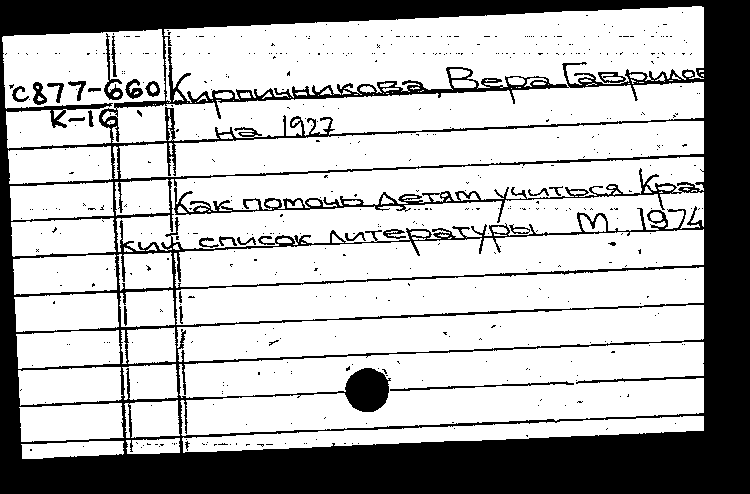 С877-660 Кирпичникова, Вера Гаврилов
К-16
на. 1927
Как помочь детям учиться. Крат
кий список литературы. М., 1974